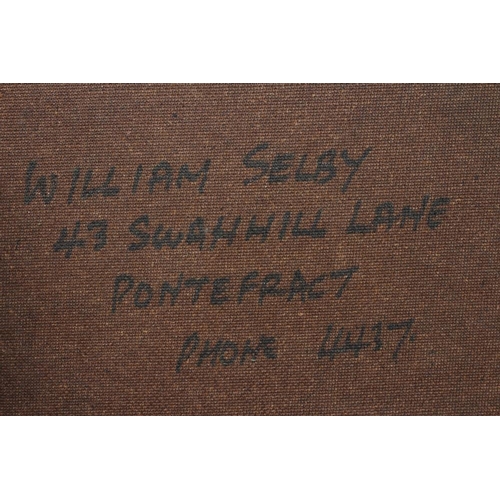 WILLIAM SELBY
43 SWANHILL LANE
PONTEFRACT
PHONE 4437.